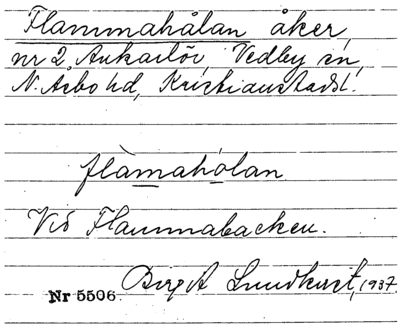 Flammahålan åker,
nr 2, Ankarlöv, Vedby sn,
N. Åsbo hd, Kristianstads l.
flàmahólan
Vid Flammabacken.
Nr 5506. Birgit Lundkvist, 1937.